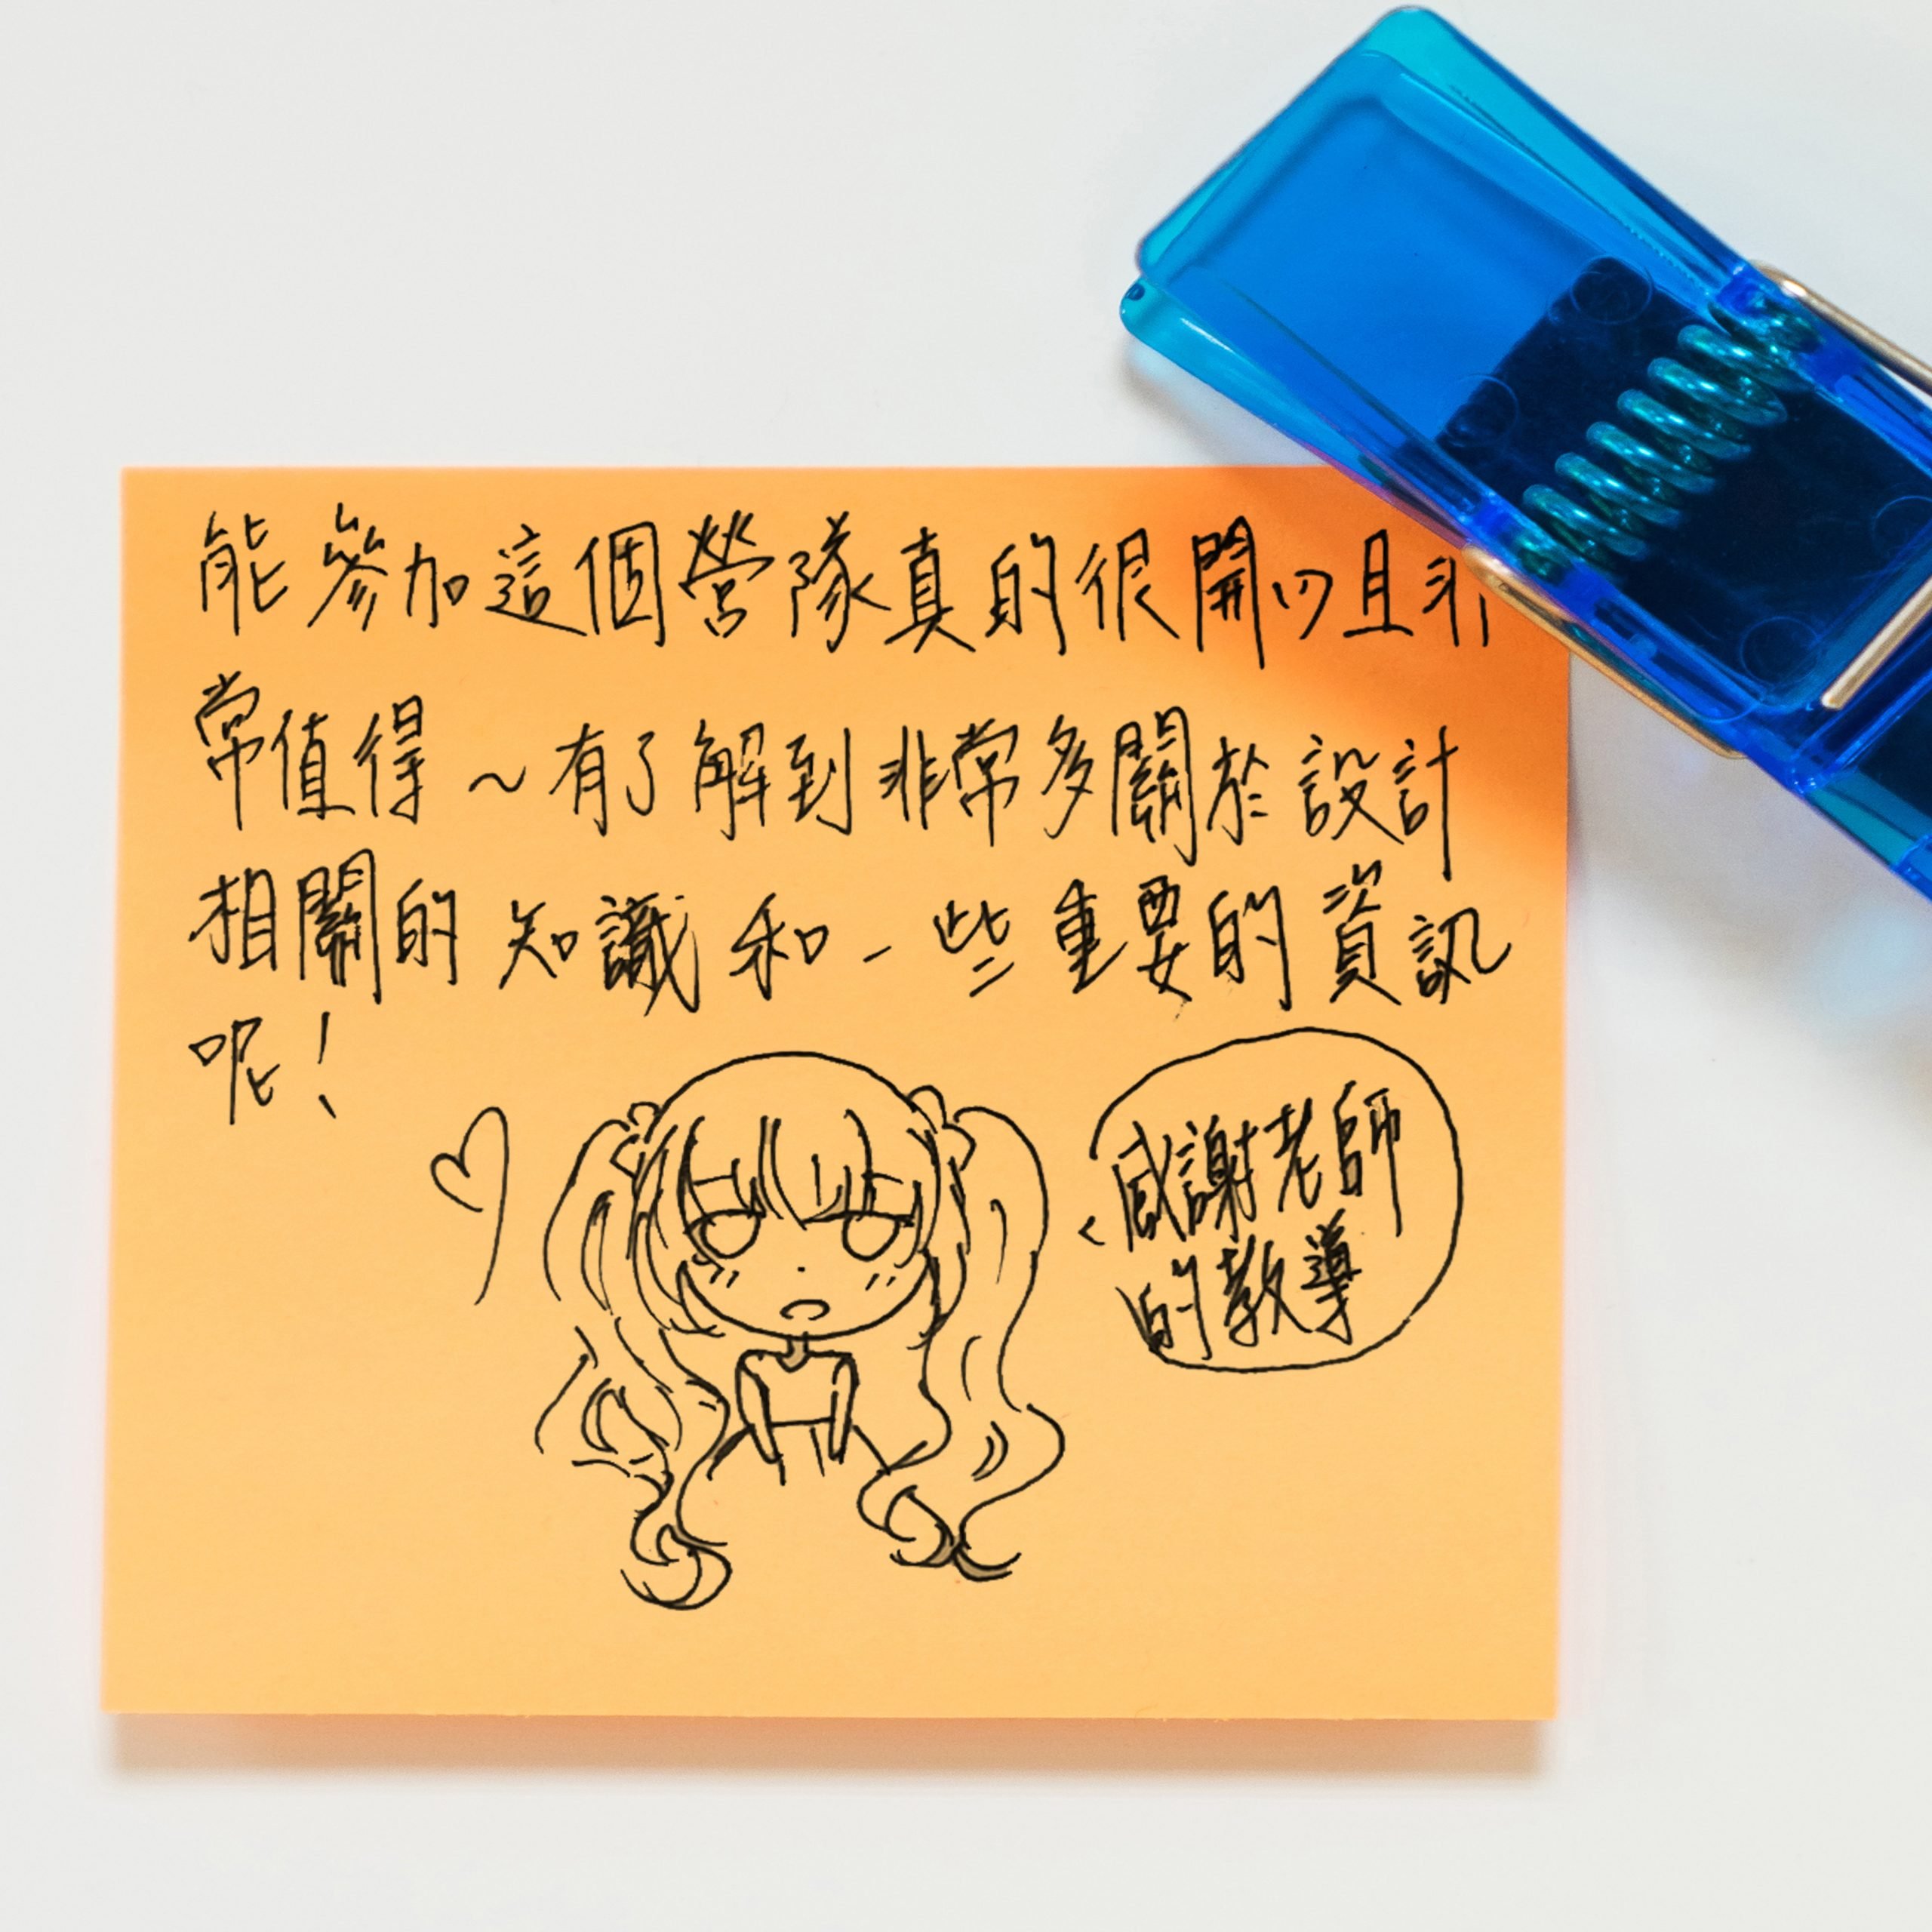 能參加這個營隊真的很開心且非
常值得~有了解到非常多關於設計
相關的知識和一些重要的資訊
呢!
感謝老師
的教導